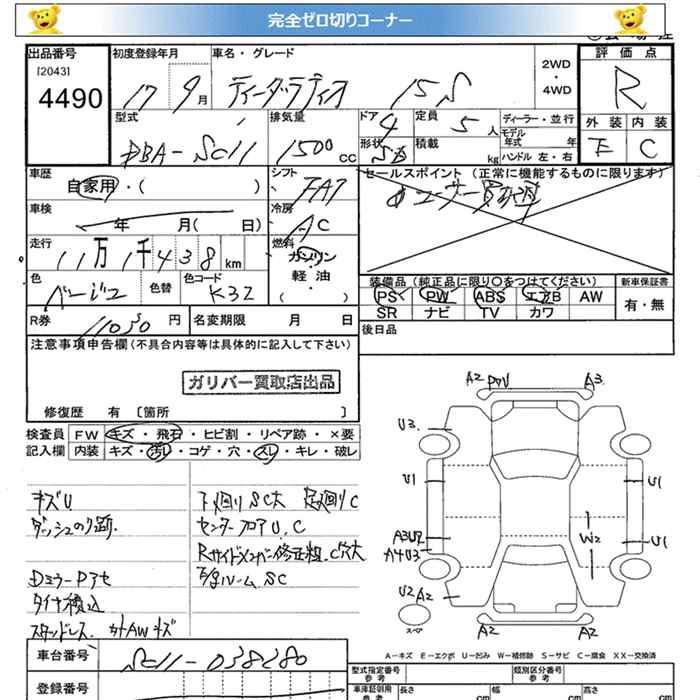 完全ゼロ切りコーナー
出品番号 初度登録年月 車名・グレード 評価点
[2043] 2WD
4490 17 9月 ティーダラティオ 15S ・ R
4WD
型式 排気量 ドア 定員 ディーラー・並行 外装 内装
DBA-SC11 1500cc 4 5人 モデル年式 年 E C
形状 積載 kg ハンドル 左・右
車歴 シフト セールスポイント(正常に機能するものに限ります)
自家用・( ) FAT ユーザー買取車
車検 冷房
年 月( 日) AC
走行 燃料
11万1千438km ガソリン
色 色替 色コード 軽・油
ベージュ K32 ( )
装備品(純正品に限り〇をつけてください) 新車保証書
PS PW ABS エアB AW 有・無
SR ナビ TV カワ
R券 11030円 名変期限 月 日
後日品
注意事項申告欄(不具合内容等は具体的に記入して下さい)
ガリバー買取店出品
修復歴 有 [箇所 ]
検査員 FW キズ・飛石・ヒビ割・リペア跡・×要
記入欄 内装 キズ・汚レ・コゲ・穴・スレ・キレ・破レ
キズU
ダッシュのり跡.
Dミラー Pアセ
タイヤ積込
スタッドレス. カナAWキズ
下廻りSC大 足廻りC
センターフロアU,C
Rサイドメンバー修正粗.C穴大
SC
A2 PワV A3
U3
U1 U1
A3U2 W2 U1
A4U3
U2A2
スペア A2 A2
A-キズ E-エクボ U-凹み W-補修跡 S-サビ C-腐食 XX-交換済
車台番号 SC11-038280
登録番号
型式指定番号 類別区分番号
参考 参考
車庫証明用 長さ 幅 高さ
参考 cm cm cm